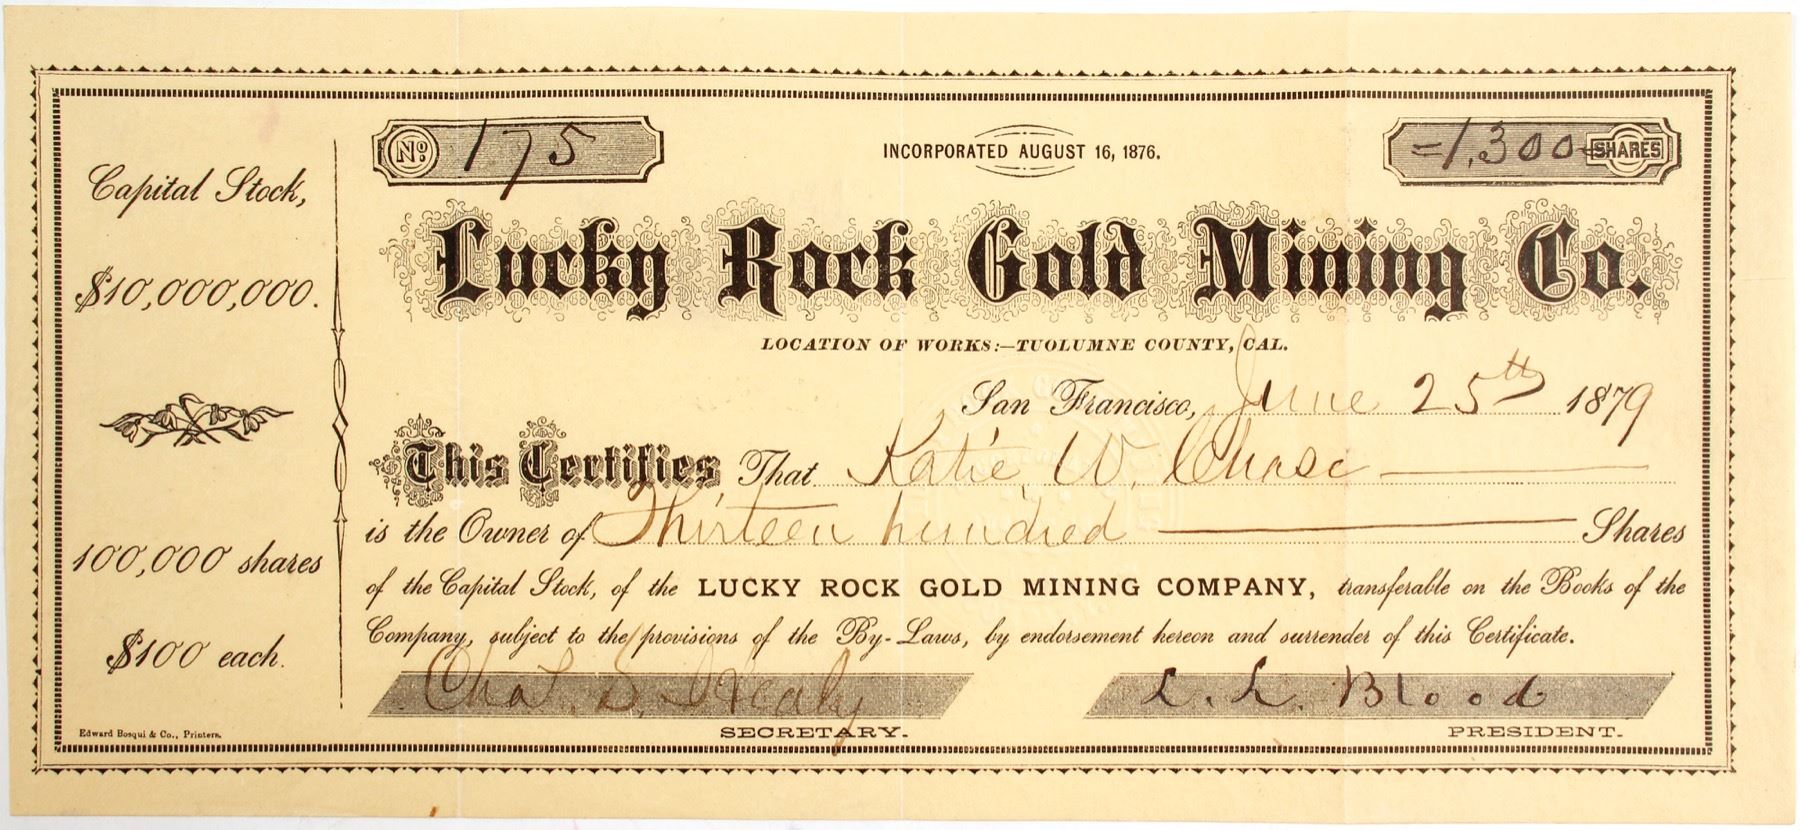 Capital Stock,
$10,000,000.
100,000 shares
$100 each.
Edward Bosqui & Co., Printers.
No. 175
INCORPORATED AUGUST 16, 1876.
=1,300= SHARES
Lucky Rock Gold Mining Co.
LOCATION OF WORKS:—TUOLUMNE COUNTY, CAL.
San Francisco, June 25th 1879
This Certifies That Katie W. Chase
is the Owner of Thirteen hundred Shares
of the Capital Stock, of the LUCKY ROCK GOLD MINING COMPANY, transferable on the Books of the
Company, subject to the provisions of the By-Laws, by endorsement hereon and surrender of this Certificate.
Chas. S. Healy L. L. Blood
SECRETARY. PRESIDENT.